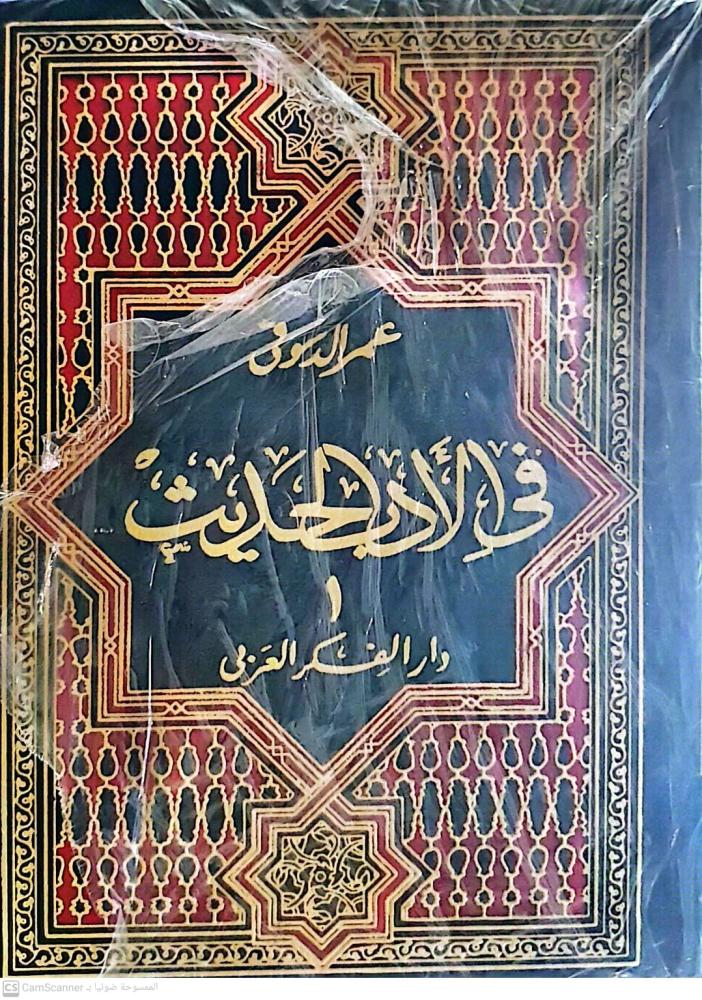 عمر الدسوقى
فى الأدب الحديث
١
دار الفكر العربى
CS CamScanner الممسوحة ضوئيا بـ